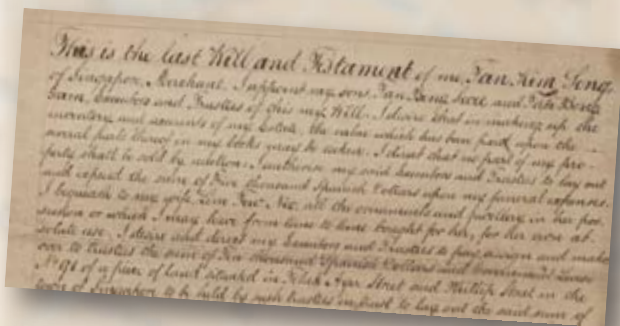 This is the last Will and Testament of me Tan Kim Seng
of Singapore, Merchant. I appoint my sons Tan Beng Swee and Tan Beng
Gum, Executors and Trustees of this my Will. I desire that in making up the
inventory and accounts of my Estate, the value which has been put upon the
several parts thereof in my books may be taken. I direct that no part of my pro-
perty shall be sold by auction. I authorise my said Executors and Trustees to lay out
and expend the sum of Five thousand Spanish Dollars upon my funeral expenses.
I bequeath to my wife all the ornaments and jewellery in her pos
session or which I may have from time to time bought for her, for her own ab-
solute use. I desire and direct my Executors and Trustees to pay, assign and make
over to trustees the sum of thousand Spanish Dollars and Government
No 91 of a piece of land situated in Teluk Ayer Street and Phillip Street in the
town of Singapore to be held by such trustees in trust to lay out the said sum of